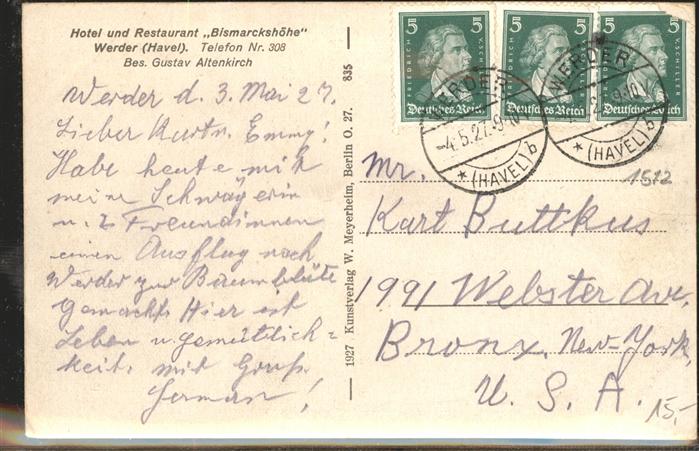 Hotel und Restaurant „Bismarckshöhe"
Werder (Havel). Telefon Nr. 308
Bes. Gustav Altenkirch
Werder d. 3. Mai 27.
Lieber Kurt u. Emmy!
Habe heute mit
meine Schwägerin
u. 2 Freundinnen
einen Ausflug nach
Werder zur Baumblüte
gemacht. Hier ist
Leben u. gemütlich-
keit. mit Gruß
Herman!
1927 Kunstverlag W. Meyerheim, Berlin O. 27. 835
5 5
FRIEDRICH V. SCHILLER
Deutsches Reich
5 5
FRIEDRICH V. SCHILLER
Deutsches Reich
5 5
FRIEDRICH V. SCHILLER
Deutsches Reich
WERDER
-4.5.27.9-10
* (HAVEL) b
WERDER
* (HAVEL) b
1572
Mr.
Kart Buttkus
1991 Webster Ave,
Bronx, New-York,
U. S. A.
15,-